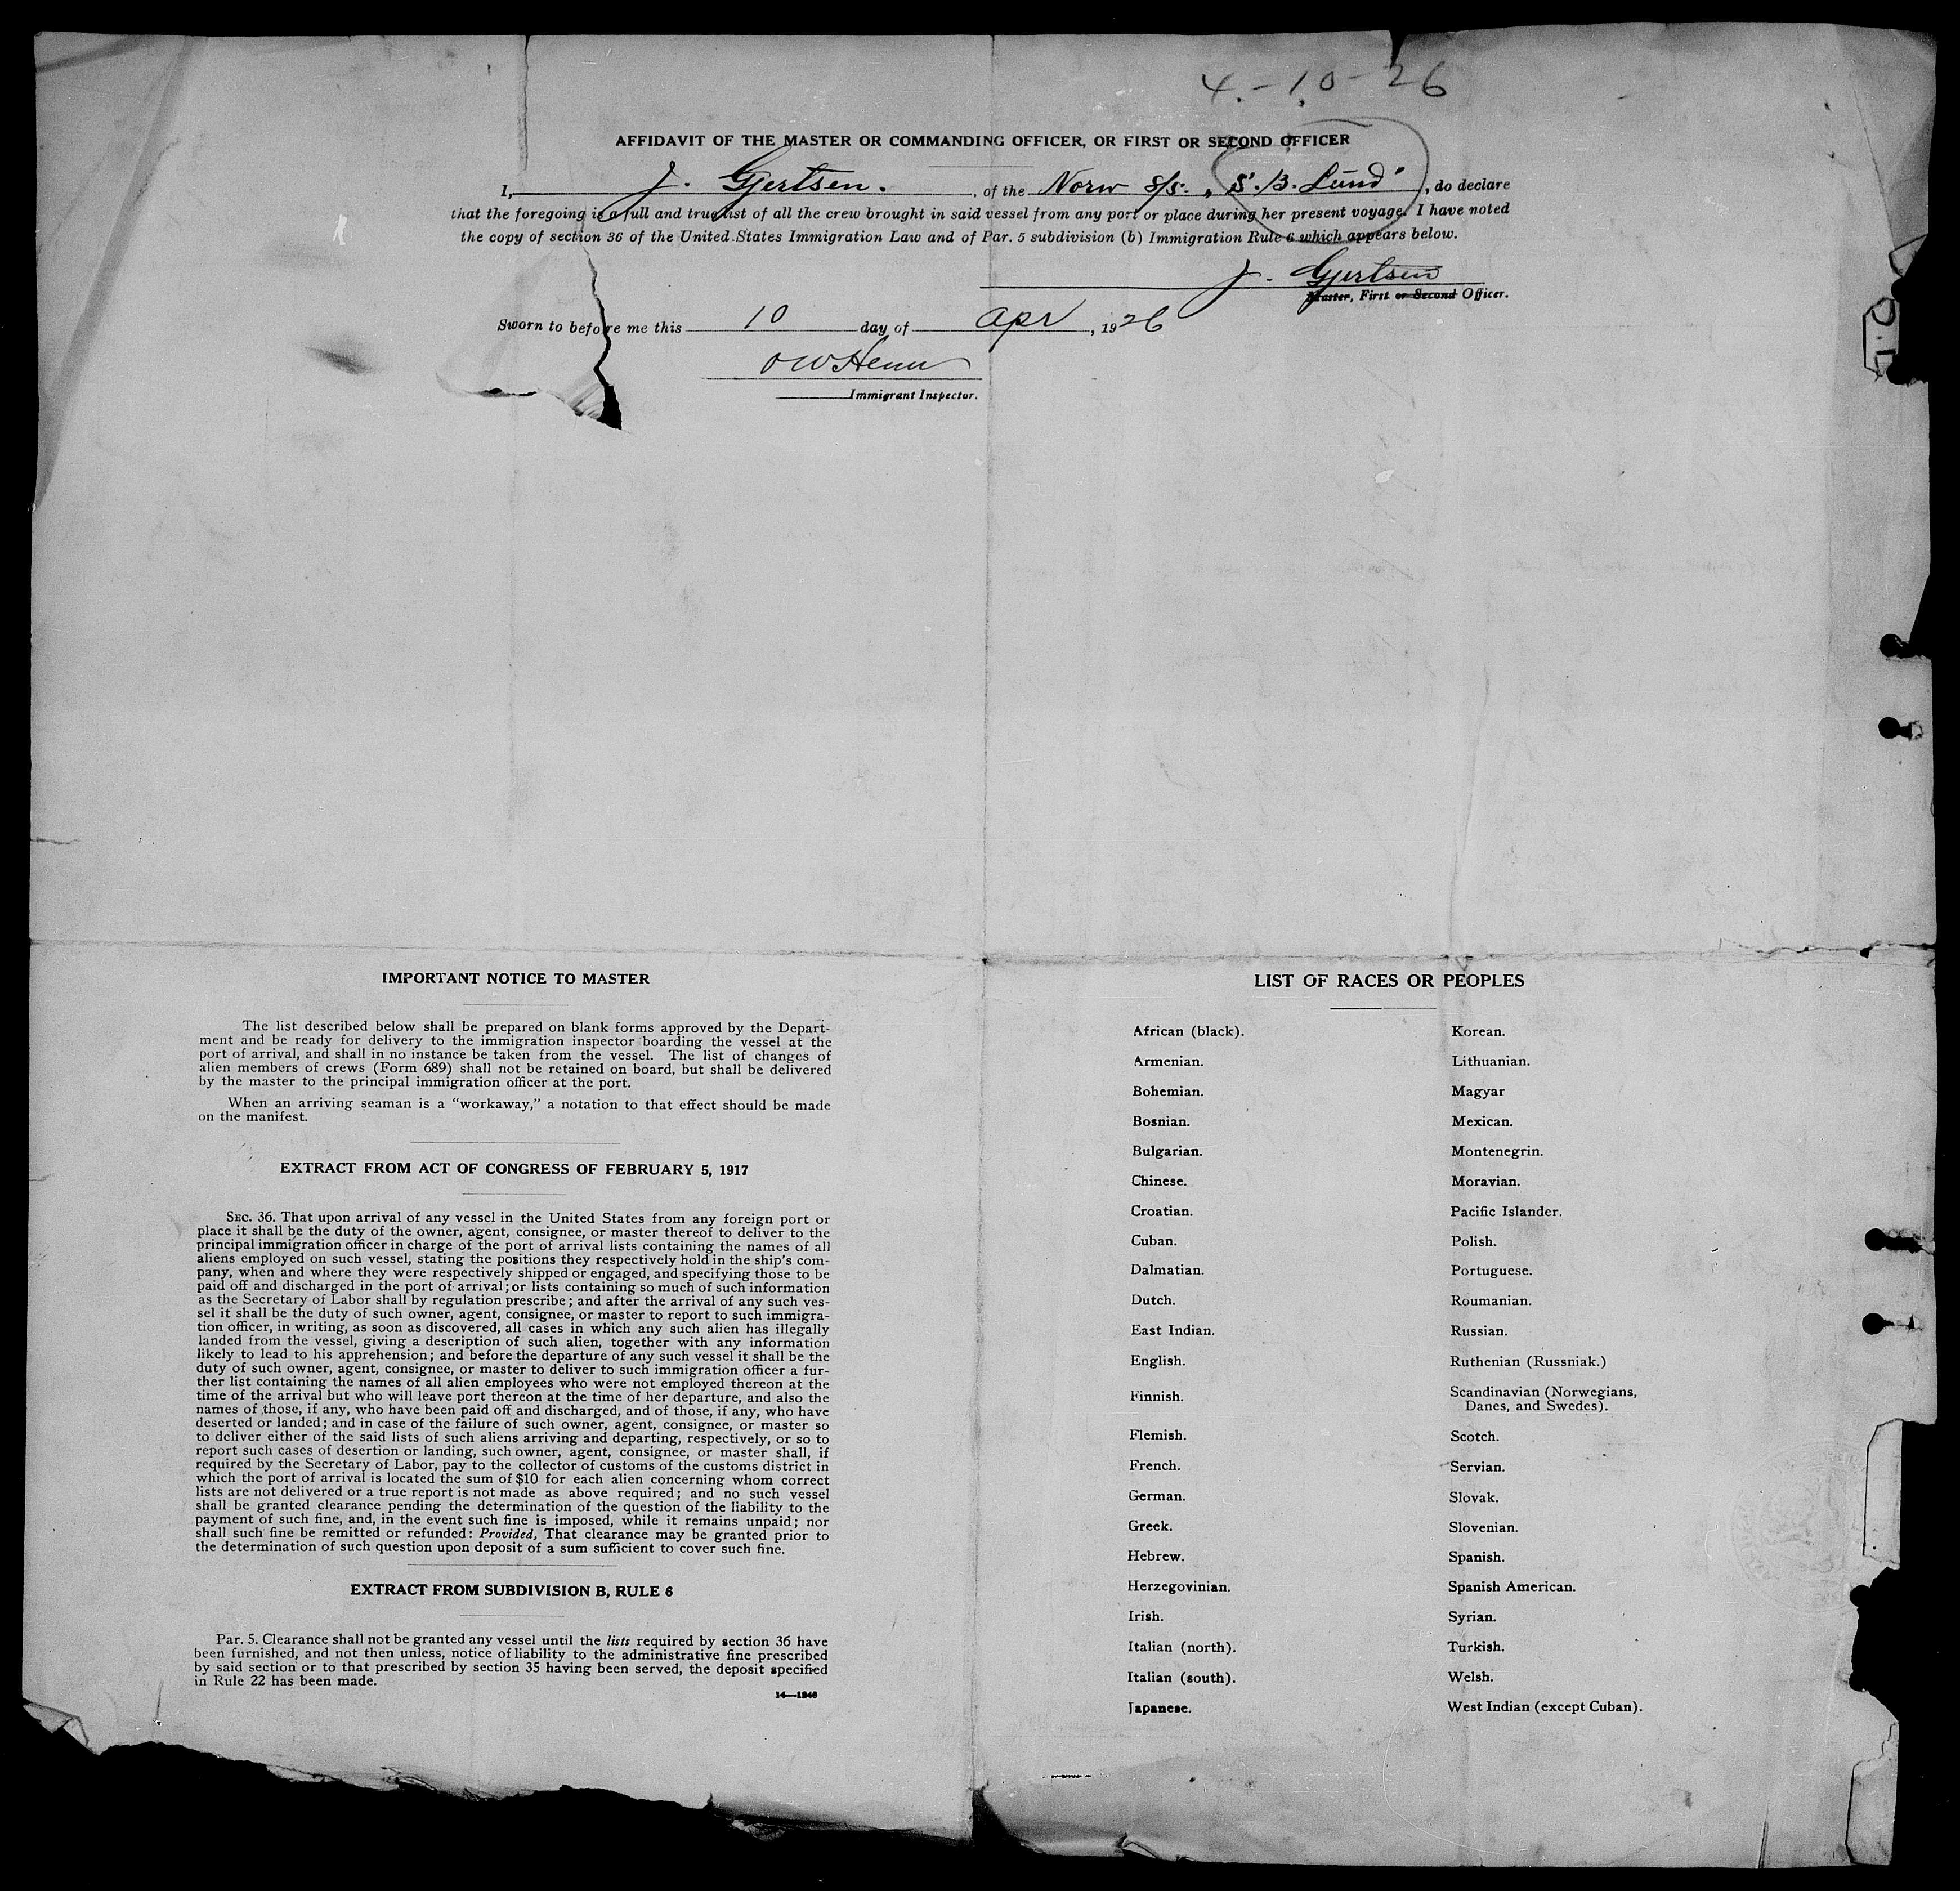 4.-10-26
AFFIDAVIT OF THE MASTER OR COMMANDING OFFICER, OR FIRST OR SECOND OFFICER
I, J. Gjertsen. , of the Norw S/S. „S. B. Lund" , do declare
that the foregoing is a full and true list of all the crew brought in said vessel from any port or place during her present voyage. I have noted
the copy of section 36 of the United States Immigration Law and of Par. 5 subdivision (b) Immigration Rule 6 which appears below.
J. Gjertsen
Master, First or Second Officer.
Sworn to before me this 10 day of Apr , 1926
Immigrant Inspector.
IMPORTANT NOTICE TO MASTER
The list described below shall be prepared on blank forms approved by the Depart-
ment and be ready for delivery to the immigration inspector boarding the vessel at the
port of arrival, and shall in no instance be taken from the vessel. The list of changes of
alien members of crews (Form 689) shall not be retained on board, but shall be delivered
by the master to the principal immigration officer at the port.
When an arriving seaman is a “workaway,” a notation to that effect should be made
on the manifest.
EXTRACT FROM ACT OF CONGRESS OF FEBRUARY 5, 1917
SEC. 36. That upon arrival of any vessel in the United States from any foreign port or
place it shall be the duty of the owner, agent, consignee, or master thereof to deliver to the
principal immigration officer in charge of the port of arrival lists containing the names of all
aliens employed on such vessel, stating the positions they respectively hold in the ship's com-
pany, when and where they were respectively shipped or engaged, and specifying those to be
paid off and discharged in the port of arrival; or lists containing so much of such information
as the Secretary of Labor shall by regulation prescribe; and after the arrival of any such ves-
sel it shall be the duty of such owner, agent, consignee, or master to report to such immigra-
tion officer, in writing, as soon as discovered, all cases in which any such alien has illegally
landed from the vessel, giving a description of such alien, together with any information
likely to lead to his apprehension; and before the departure of any such vessel it shall be the
duty of such owner, agent, consignee, or master to deliver to such immigration officer a fur-
ther list containing the names of all alien employees who were not employed thereon at the
time of the arrival but who will leave port thereon at the time of her departure, and also the
names of those, if any, who have been paid off and discharged, and of those, if any, who have
deserted or landed; and in case of the failure of such owner, agent, consignee, or master so
to deliver either of the said lists of such aliens arriving and departing, respectively, or so to
report such cases of desertion or landing, such owner, agent, consignee, or master shall, if
required by the Secretary of Labor, pay to the collector of customs of the customs district in
which the port of arrival is located the sum of $10 for each alien concerning whom correct
lists are not delivered or a true report is not made as above required; and no such vessel
shall be granted clearance pending the determination of the question of the liability to the
payment of such fine, and, in the event such fine is imposed, while it remains unpaid; nor
shall such fine be remitted or refunded: Provided, That clearance may be granted prior to
the determination of such question upon deposit of a sum sufficient to cover such fine.
EXTRACT FROM SUBDIVISION B, RULE 6
Par. 5. Clearance shall not be granted any vessel until the lists required by section 36 have
been furnished, and not then unless, notice of liability to the administrative fine prescribed
by said section or to that prescribed by section 35 having been served, the deposit specified
in Rule 22 has been made.
14—1240
LIST OF RACES OR PEOPLES
African (black).
Armenian.
Bohemian.
Bosnian.
Bulgarian.
Chinese.
Croatian.
Cuban.
Dalmatian.
Dutch.
East Indian.
English.
Finnish.
Flemish.
French.
German.
Greek.
Hebrew.
Herzegovinian.
Irish.
Italian (north).
Italian (south).
Japanese.
Korean.
Lithuanian.
Magyar
Mexican.
Montenegrin.
Moravian.
Pacific Islander.
Polish.
Portuguese.
Roumanian.
Russian.
Ruthenian (Russniak.)
Scandinavian (Norwegians,
Danes, and Swedes).
Scotch.
Servian.
Slovak.
Slovenian.
Spanish.
Spanish American.
Syrian.
Turkish.
Welsh.
West Indian (except Cuban).